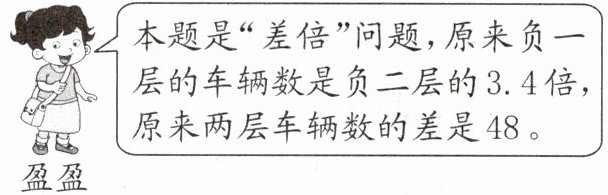 本题是“差倍”问题,原来负一
层的车辆数是负二层的3.4倍,
原来两层车辆数的差是48。
盈盈